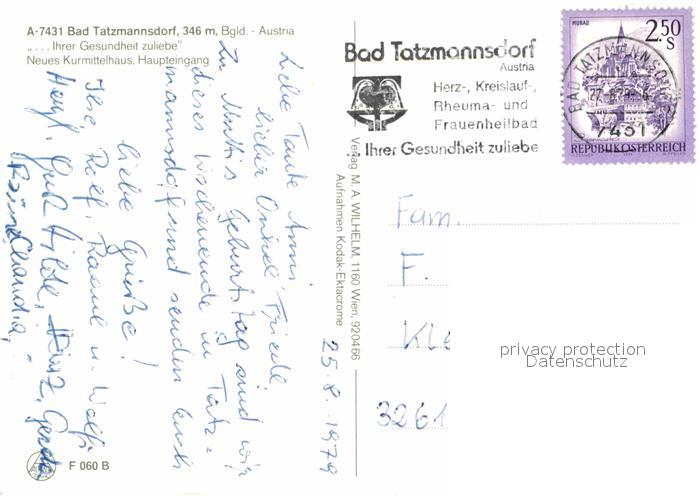 A-7431 Bad Tatzmannsdorf, 346 m, Bgld. - Austria
„. . . Ihrer Gesundheit zuliebe"
Neues Kurmittelhaus, Haupteingang
Liebe Tante Anni,
lieber Onkel Friedl,
Zu Muttis Geburtstag sind wir
dieses Wochenende in Tatz=
mannsdorf und senden Euch
liebe Grüße!
Ihre Rolf, Raoul u. Wolfi
Hilde, Gerda
Claudia,
25.8.1979
F 060 B
Verlag M. A. WILHELM, 1160 Wien, 920466
Aufnahmen Kodak-Ektacrome
Bad Tatzmannsdorf
Austria
Herz-, Kreislauf-,
Rheuma- und
Frauenheilbad
Ihrer Gesundheit zuliebe
MURAU
2.50
S
BAD TATZMANNSDORF
7431
REPUBLIK ÖSTERREICH
Fam.
F.
Kle
3261
privacy protection
Datenschutz